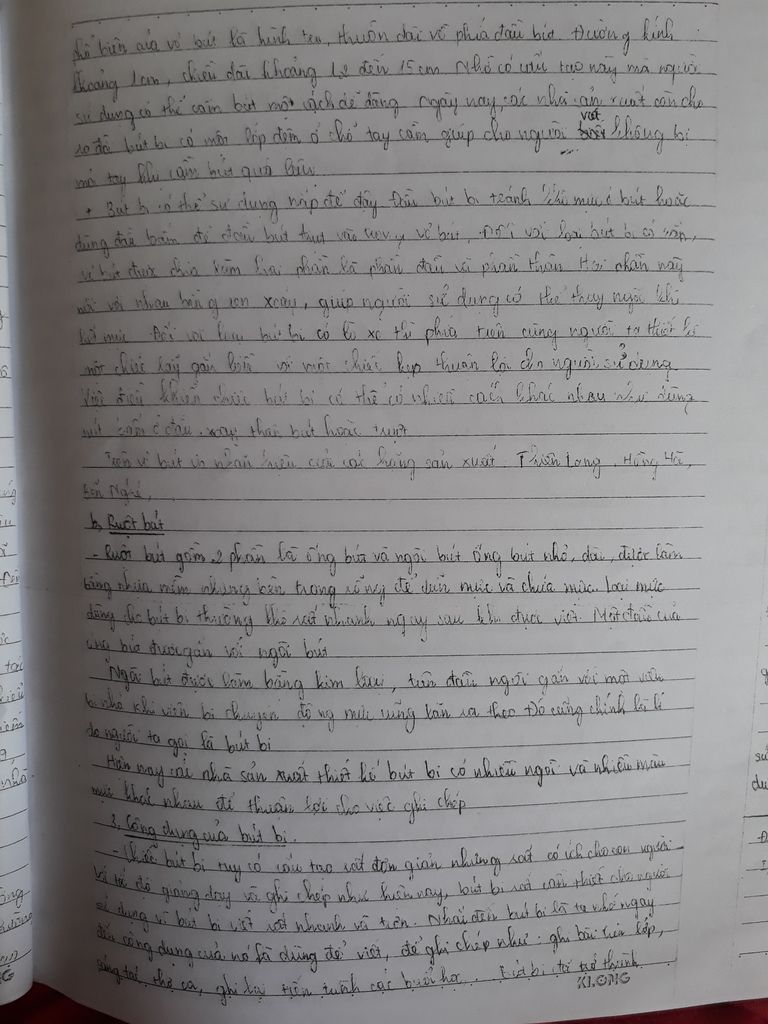 phổ biến của vỏ bút là hình trụ, thuôn dài về phía đầu bút. Đường kính
khoảng 1cm, chiều dài khoảng 12 đến 15cm. Nhờ có cấu tạo này mà người
sử dụng có thể cầm bút một cách dễ dàng. Ngày nay, các nhà sản xuất còn cho
ra đời bút bi có một lớp đệm ở chỗ tay cầm giúp cho người viết không bị
mỏi tay khi cầm bút quá lâu.
+ Bút bi có thể sử dụng nắp để đậy đầu bút bi tránh khô mực ở bút hoặc
dùng đầu bấm để đầu bút thụt vào trong vỏ bút. Đối với loại bút bi có
vỏ bút được chia làm hai phần là phần đầu và phần thân. Hai phần này
nối với nhau bằng ren xoáy, giúp người sử dụng có thể thay ngòi khi
hết mực. Đối với loại bút bi có lò xo thì phía trên cùng người ta thiết kế
một chiếc gắn liền với một chiếc kẹp thuận lợi cho người sử dụng
Việc điều khiển chiếc bút bi có thể có nhiều cách khác nhau như dùng
nút bấm ở đầu, xoay thân bút hoặc trượt.
Trên vỏ bút in nhãn hiệu của các hãng sản xuất: Thiên Long, Hồng Hà,
Bến Nghé,
b, Ruột bút
- Ruột bút gồm 2 phần là ống bút và ngòi bút. Ống bút nhỏ, dài, được làm
bằng nhựa mềm nhưng bên trong rỗng để dẫn mực và chứa mực. Loại mực
dùng cho bút bi thường khô rất nhanh ngay sau khi được viết. Một đầu của
ống bút được gắn với ngòi bút
Ngòi bút được làm bằng kim loại, trên đầu ngòi gắn với một viên
bi nhỏ khi viên bi chuyển động mực cũng lăn ra theo. Đó cũng chính là lí
do người ta gọi là bút bi
Hiện nay các nhà sản xuất thiết kế bút bi có nhiều ngòi và nhiều màu
mực khác nhau để thuận lợi cho việc ghi chép
3. Công dụng của bút bi.
- Chiếc bút bi tuy có cấu tạo rất đơn giản nhưng rất có ích cho con người
Với tốc độ giảng dạy và ghi chép như hiện nay, bút bi rất cần thiết cho người
sử dụng vì bút bi viết rất nhanh và trơn. Nhắc đến bút bi là ta nhớ ngay
đến công dụng của nó là dùng để viết, để ghi chép như: ghi bài trên lớp,
sáng tác thơ ca, ghi lại tiến trình các buổi học. Bút bi đã trở thành
KLONG